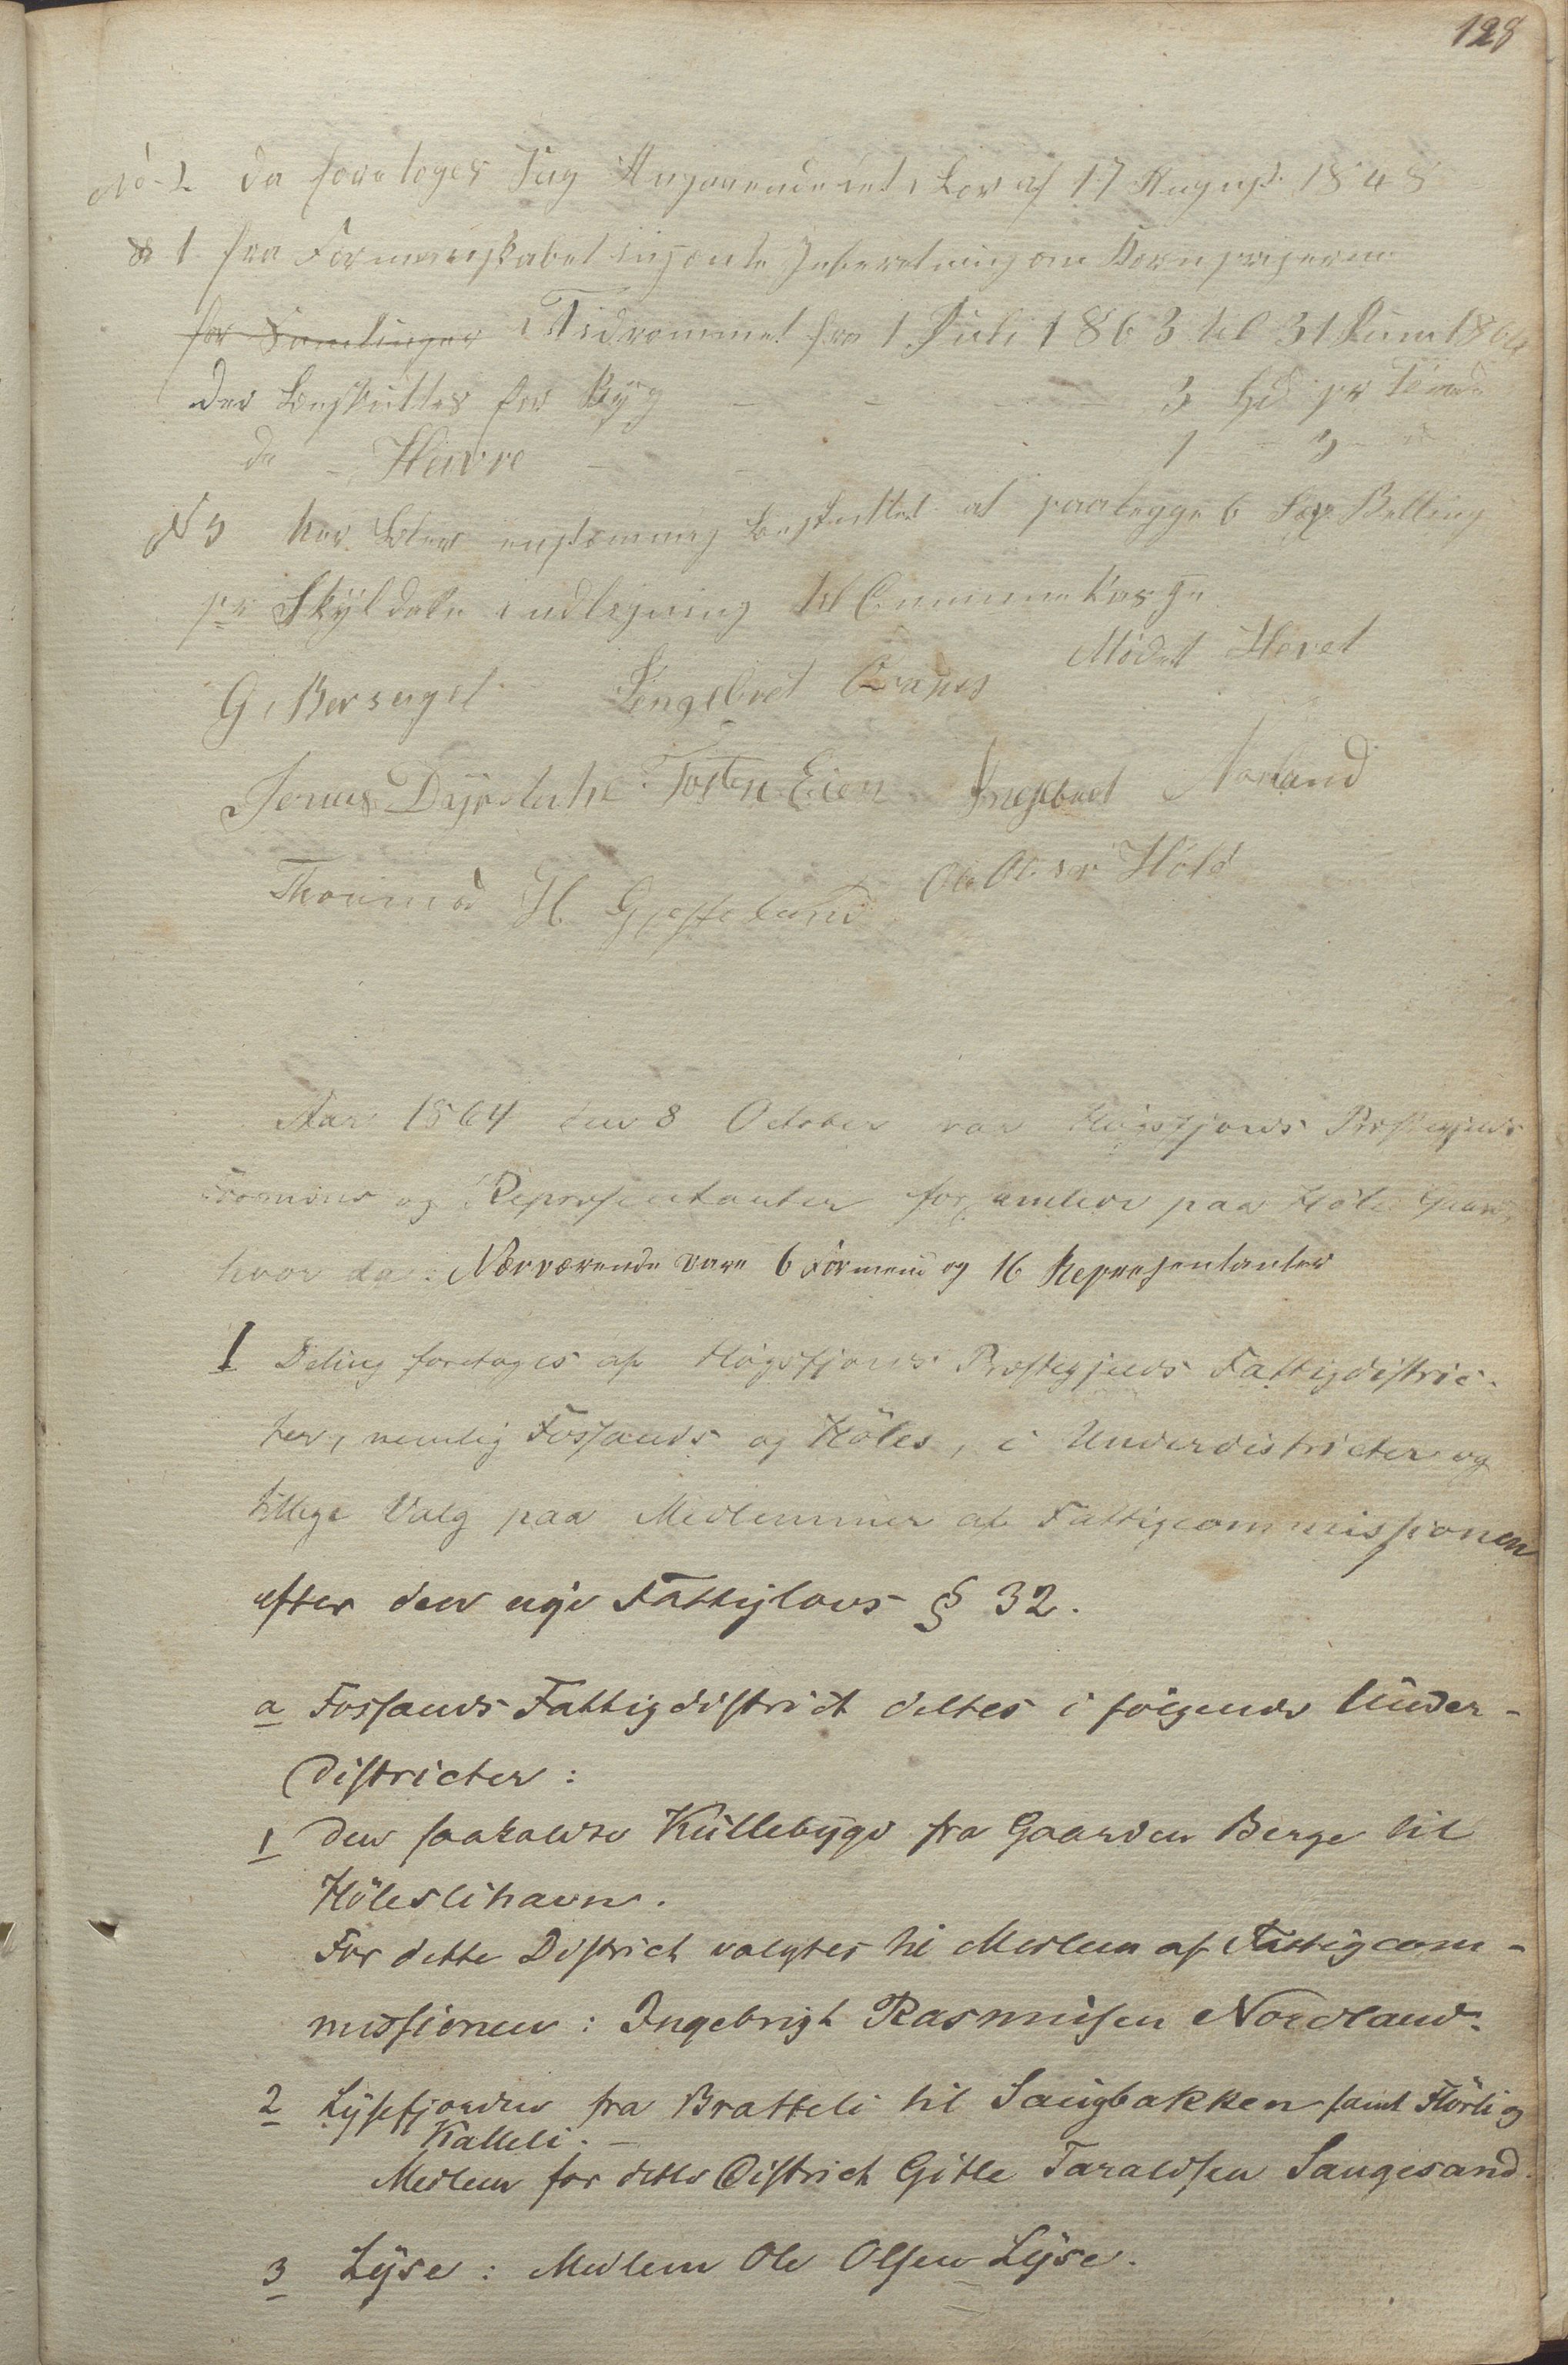 128
No 2 da foretoges Sag Angaaende det i Lov af 17 August 1848
§ 1 fra Formandskabet Indberetning om Kornpriserne
for Samlinger i Tidrommet fra 1 Juli 1863 til 31 Juni 1864
der Besluttes for Byg - - - 3 pr Tønde
do - Havre - - - 1 - 3 -
N 3 har blev enstemmig besluttet at paalegge 6 Betling
pr Skyldaler i udlegning til Communekasse
Mødet Hevet
G. Bersagel Ingebret
Jonas Tosten Eien Ingebret Aarland
H. Ole Olsen Høle
Aar 1864 den 8 October var Høgsfjords Præstegjelds
Formænd og Repræsentanter forsamlede paa Høle Gaard,
hvor da: Nærværende vare 6 Formend og 16 Representanter
I Deling foretages af Høgsfjords Præstegjelds Fattigdistric-
ter, nemlig Fossands og Høles, i Underdistricter og
tillige Valg paa Medlemmer af Fattigcommissionen
efter den nye Fattiglovs § 32.
a Fossands Fattigdistrict deltes i følgende Under-
districter:
1 den saakaldte Kullebygd fra Gaarden Berge til
Høleslihavn.
For dette District valgtes til Medlem af Fattigcom-
missionen: Ingebrigt Rasmussen Nordland.
2 Lysefjorden fra Bratteli til Saugbakken samt Flörli og
Kalleli. -
Medlem for dette District Gitle Taraldsen Saugesand.
3 Lyse: Medlem Ole Olsen Lyse.